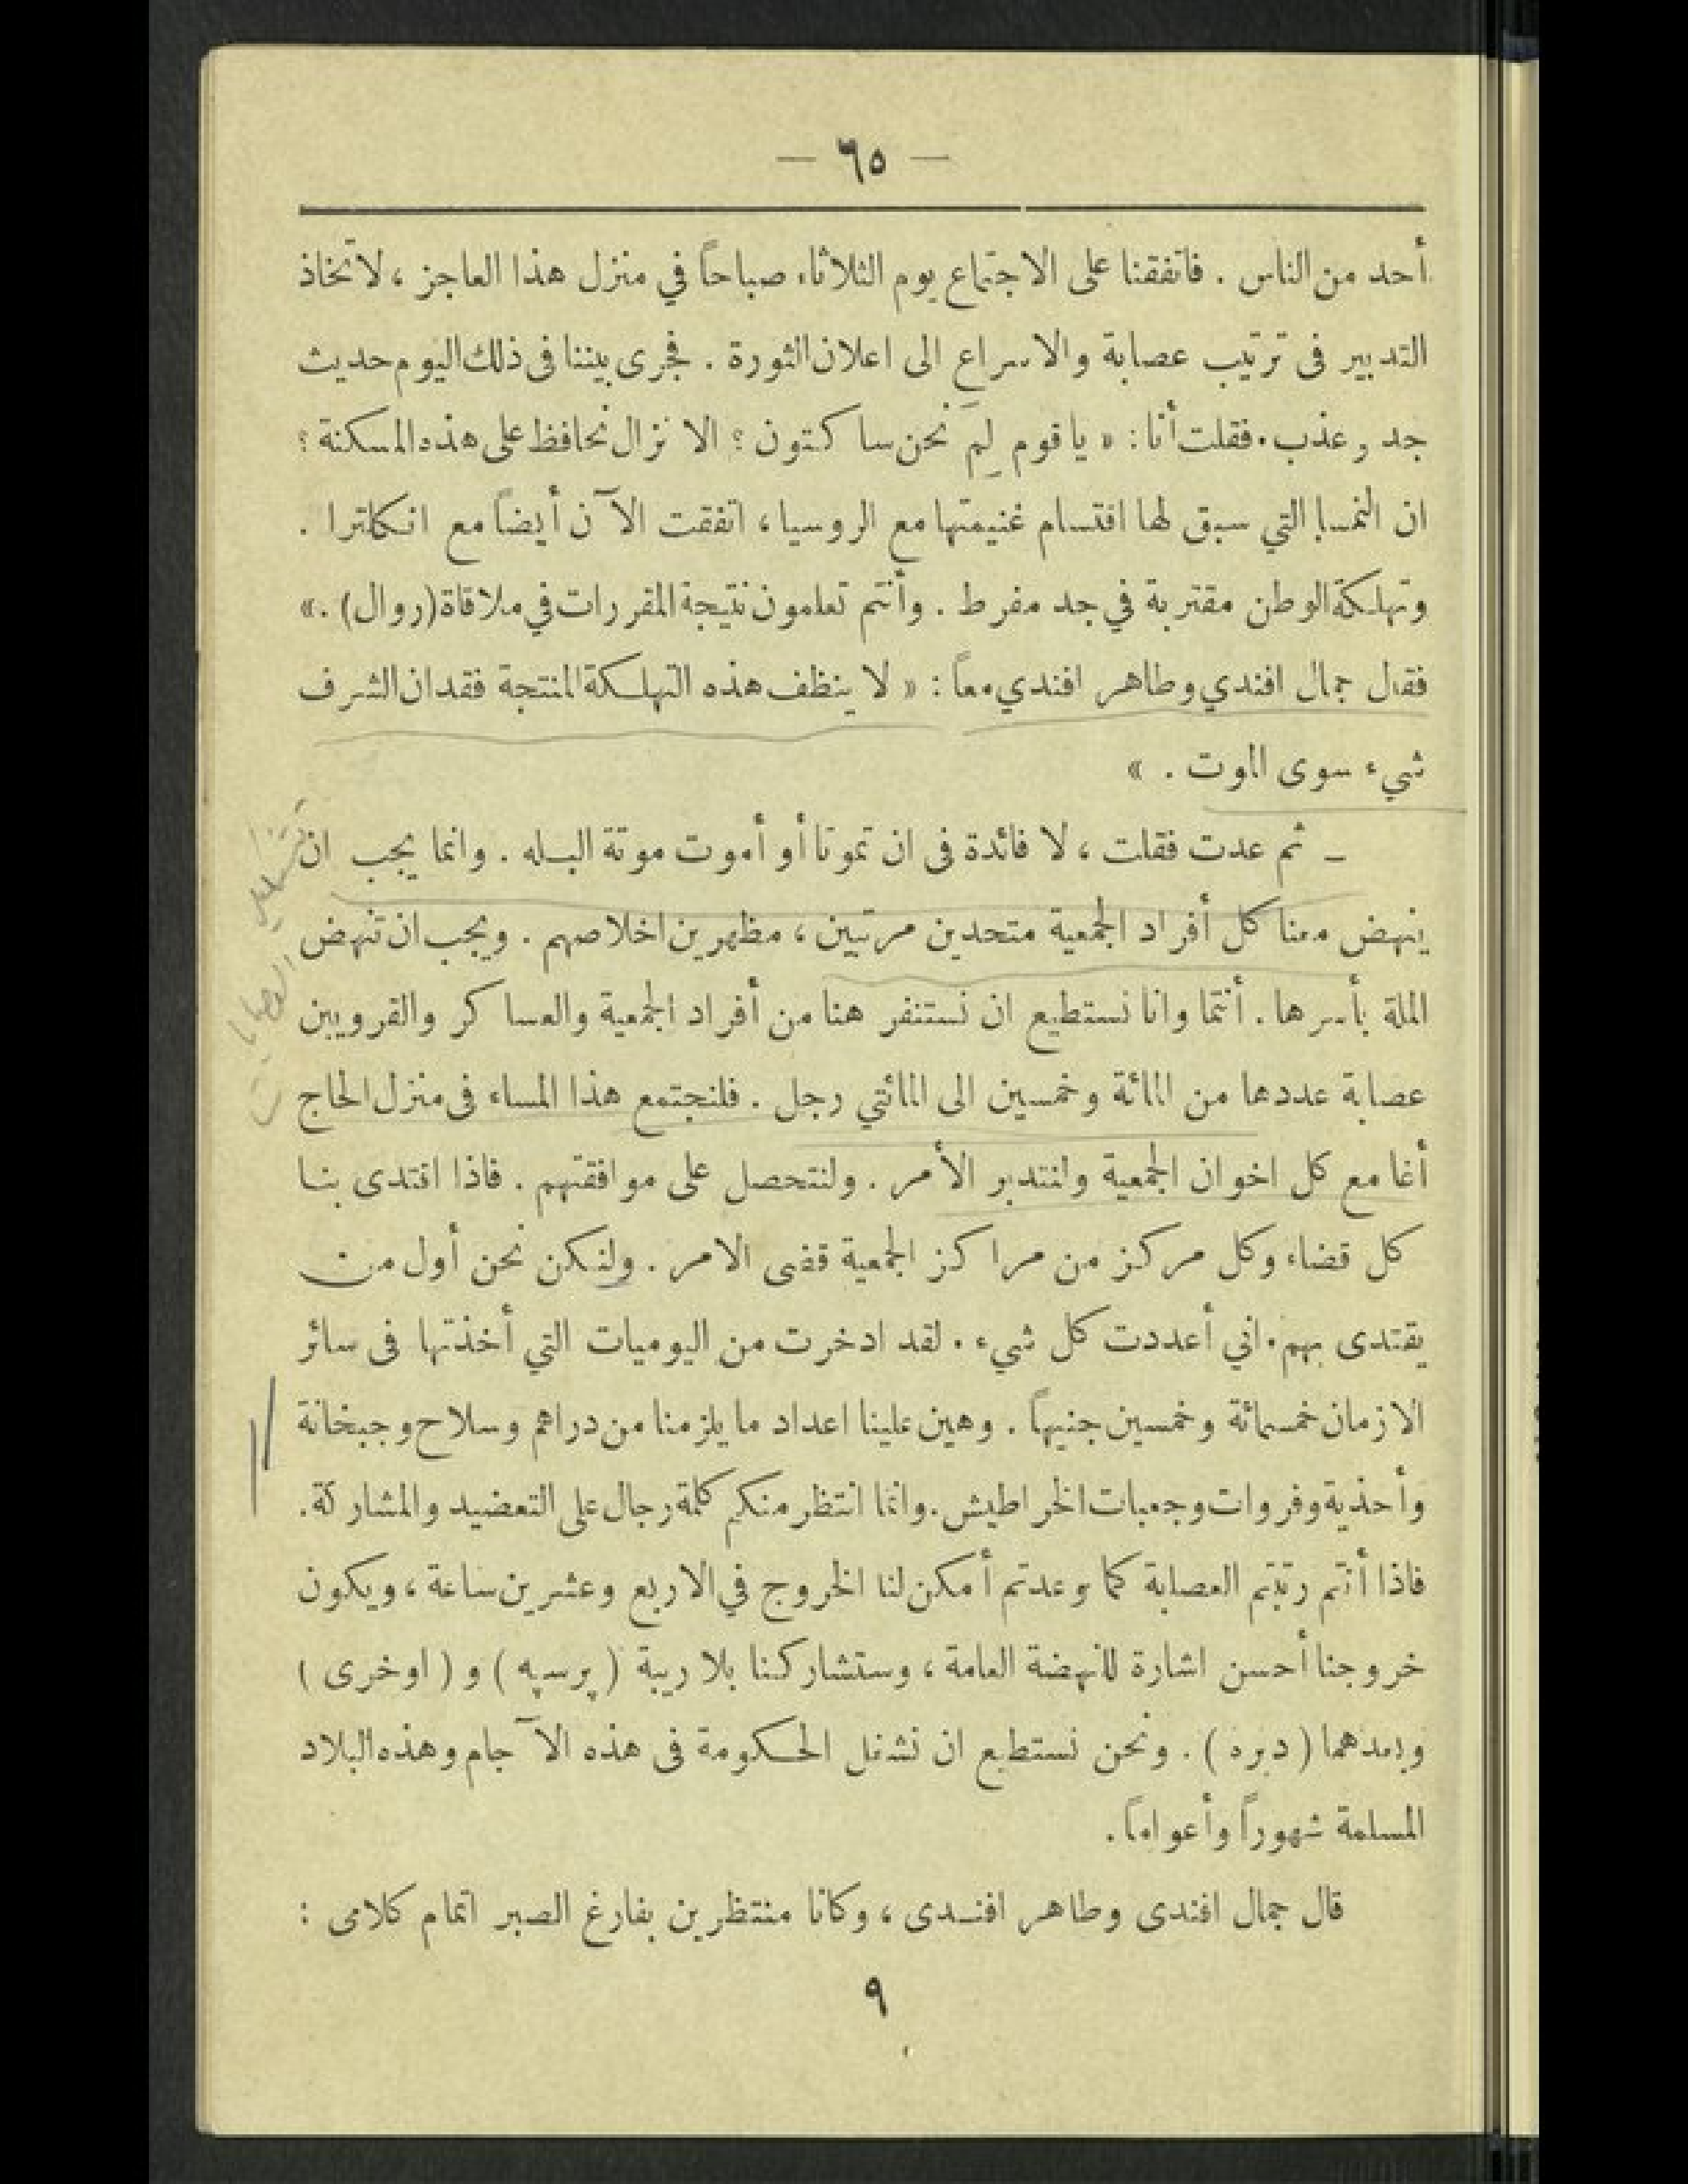 — ٦٥ —
أحد من الناس . فاتفقنا على الاجتماع يوم الثلاثاء صباحاً في منزل هذا العاجز ، لاتخاذ
التدبير فى ترتيب عصابة والاسراع الى اعلان الثورة . فجرى بيننا فى ذلك اليوم حديث
جد وعذب . فقلت أنا : « يا قوم لِمَ نحن ساكتون ؟ الا نزال نحافظ على هذه المسكنة ؟
ان النمسا التي سبق لها اقتسام غنيمتها مع الروسيا ، اتفقت الآن أيضاً مع انكلترا .
وتهلكة الوطن مقتربة في جد مفرط . وأنتم تعلمون نتيجة المقررات في ملاقاة (روال) . »
فقال جمال افندي وطاهر افندي معاً : « لا ينظف هذه التهلكة المنتجة فقدان الشرف
شيء سوى الموت . »
ـ ثم عدت فقلت ، لا فائدة فى ان تموتا أو أموت موتة البله . وانما يجب ان
ينهض معنا كل أفراد الجمعية متحدين مرتبين ، مظهرين اخلاصهم . ويجب ان تنهض
الملة بأسرها . أنتما وانا نستطيع ان نستنفر هنا من أفراد الجمعية والعساكر والقرويين
عصابة عددها من المائة وخمسين الى المائتي رجل . فلنجتمع هذا المساء فى منزل الحاج
أغا مع كل اخوان الجمعية ولنتدبر الأمر . ولنتحصل على موافقتهم . فاذا اقتدى بنا
كل قضاء وكل مركز من مراكز الجمعية قضى الامر . ولنكن نحن أول من
يقتدى بهم . اني أعددت كل شيء . لقد ادخرت من اليوميات التي أخذتها فى سائر
الازمان خمسمائة وخمسين جنيهاً . وهين علينا اعداد ما يلزمنا من دراهم وسلاح وجبخانة
وأحذية وفروات وجعبات الخراطيش . وانما انتظر منكم كلمة رجال على التعضيد والمشاركة .
فاذا أنتم رتبتم العصابة كما وعدتم أمكن لنا الخروج في الاربع وعشرين ساعة ، ويكون
خروجنا أحسن اشارة للنهضة العامة ، وستشاركنا بلا ريبة ( پرسپه ) و ( اوخرى )
وبعدهما ( دبره ) . ونحن نستطيع ان نشغل الحكومة فى هذه الآجام وهذه البلاد
المسلمة شهوراً وأعواماً .
قال جمال افندى وطاهر افندى ، وكانا منتظرين بفارغ الصبر اتمام كلامى :
٩
العصابات